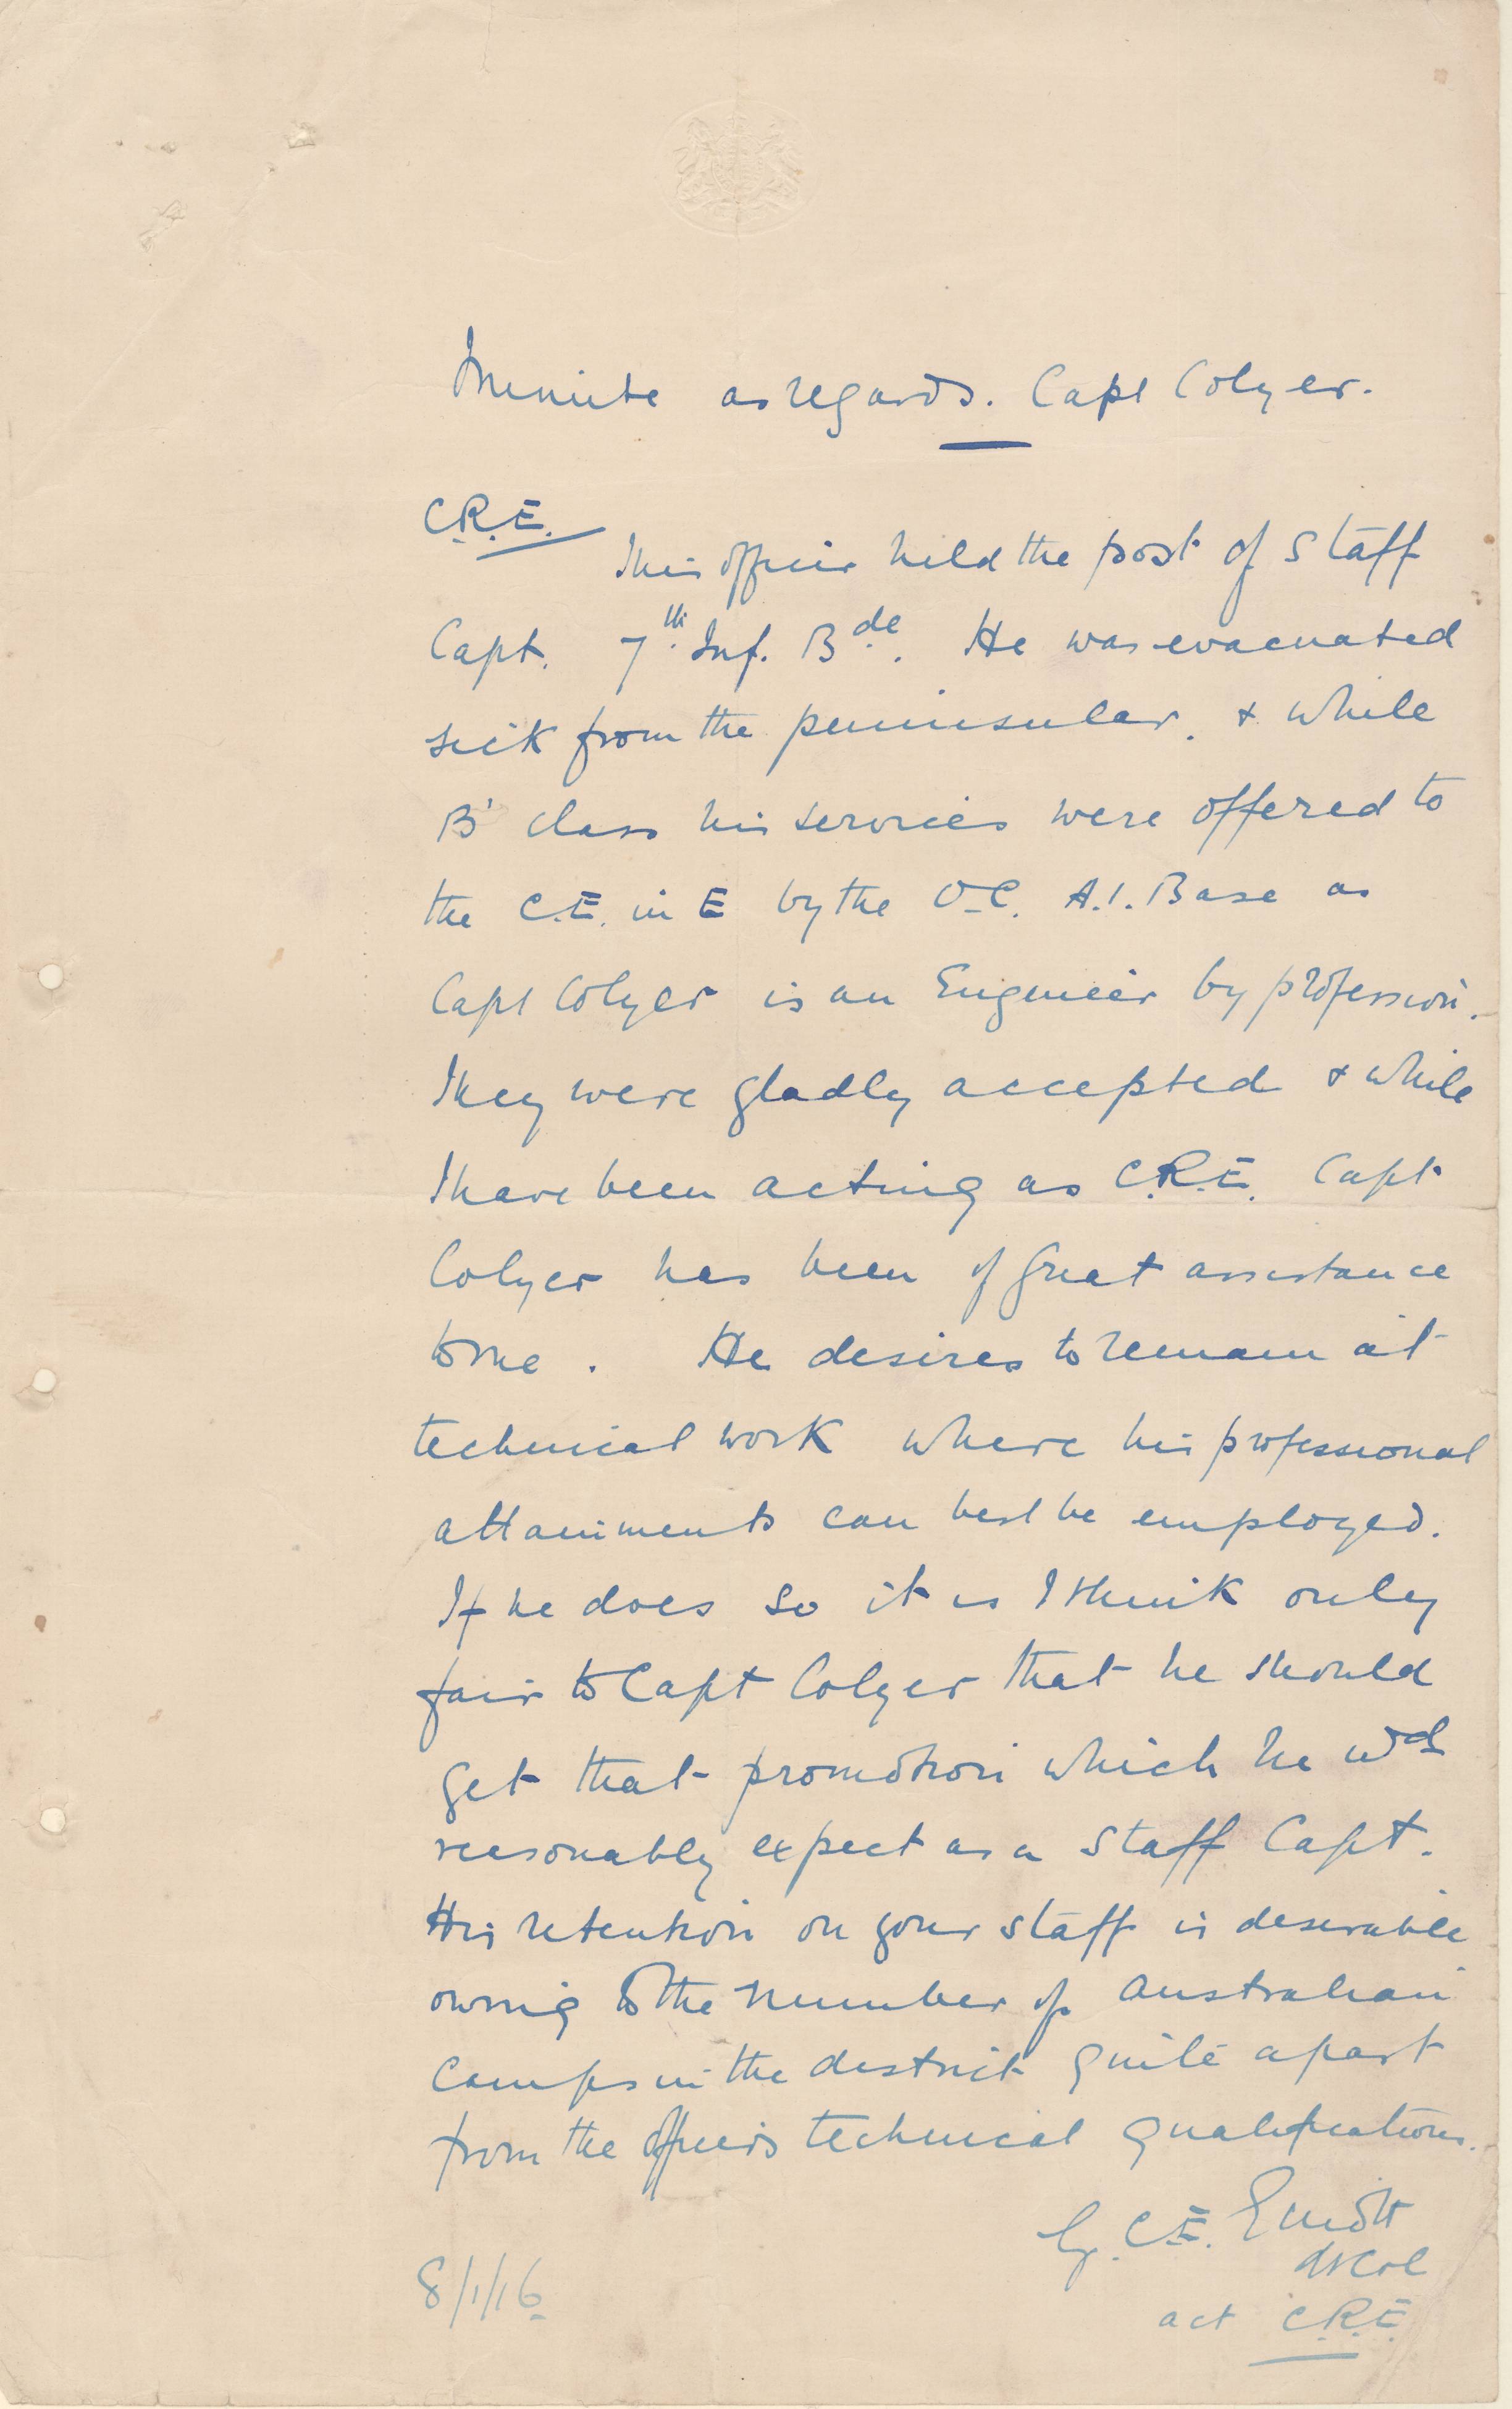 Minute as regards. Capt Colyer.
C.R.E.
This officer held the post of Staff
Capt. 7th Inf. Bde. He was evacuated
sick from the peninsular. & while
B' class his services were offered to
the C.E. in E by the O.C. A.I. Base as
Capt Colyer is an Engineer by profession.
They were gladly accepted & while
I have been acting as C.R.E. Capt
Colyer has been of great assistance
to me. He desires to remain at
technical work where his professional
attainments can best be employed.
If he does so it is I think only
fair to Capt Colyer that he should
get that promotion which he wd
reasonably expect as a Staff Capt.
His retention on your staff is desirable
owing to the number of Australian
Camps in the district quite apart
from the officers technical qualifications.
C.E.
Lt Col
8/1/16
act C.R.E.